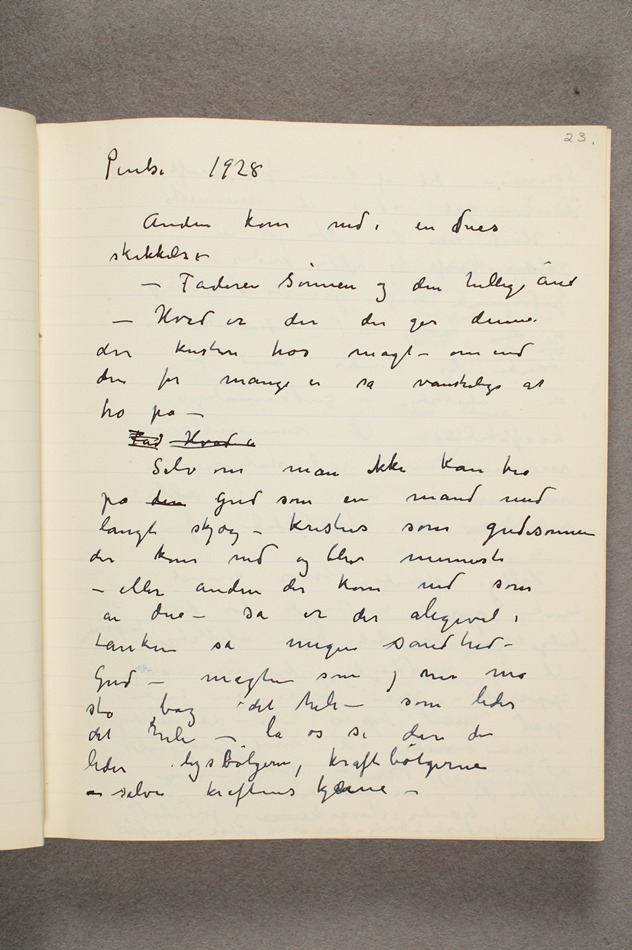 23.
Pintse 1928
Anden kom ned i en dues
skikkelse
— Faderen Sönnen og den hellige ånd
— Hvad er der der gør denne
der kristen tros magt — om end
den for mange er så vanskelig at
tro på —
Fad Hvad e
Selv om man ikke kan tro
på den Gud som en mand med
langt skjæg — Kristus som gudesönnen
der kom ned og blev menneske
— eller anden der kom ned som
en due — så er der aligevel i
tanken så megen sandhed —
Gud — magten som j mo må
stå bag det hele — som leder
det hele — la os se den der
leder lysbölgerne, kraftbölgerne
— selve kraftens kjærne —